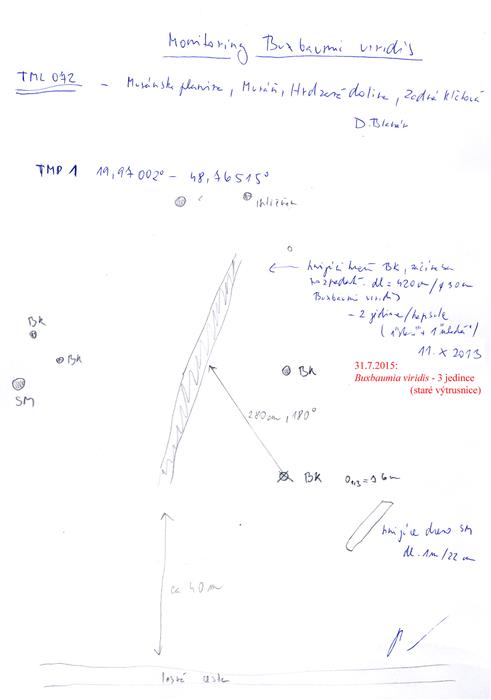 Monitoring Buxbaumi viridis
TML 072 - Muránska planina, Muráň, Hrdzavá dolina, Zadná Klátová
D. Blanár
TMP 1 19,97002° - 48,76515°
hnijúci kmeň BK, začína sa
rozpadať. dl = 420cm/φ30cm
Buxbaumi viridis
- 2 jedince/kapsule
11. X 2013
BK
BK
SM
BK
31.7.2015:
Buxbaumia viridis - 3 jedince
(staré výtrusnice)
280cm, 180°
BK
hnijúce drevo SM
dl. 1m/22cm
ca 40m
lesná cesta